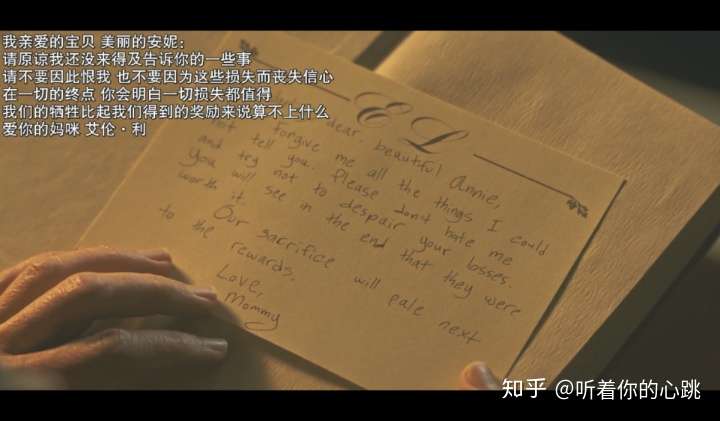 我亲爱的宝贝 美丽的安妮：
请原谅我还没来得及告诉你的一些事
请不要因此恨我 也不要因为这些损失而丧失信心
在一切的终点 你会明白一切损失都值得
我们的牺牲比起我们得到的奖励来说算不上什么
爱你的妈咪 艾伦·利
EL
dear, beautiful Annie,
forgive me all the things I could
not tell you. Please don't hate me
and try not to despair your losses.
You will see in the end that they were
worth it.
Our sacrifice will pale next
to the rewards.
Love,
Mommy
知乎 @听着你的心跳